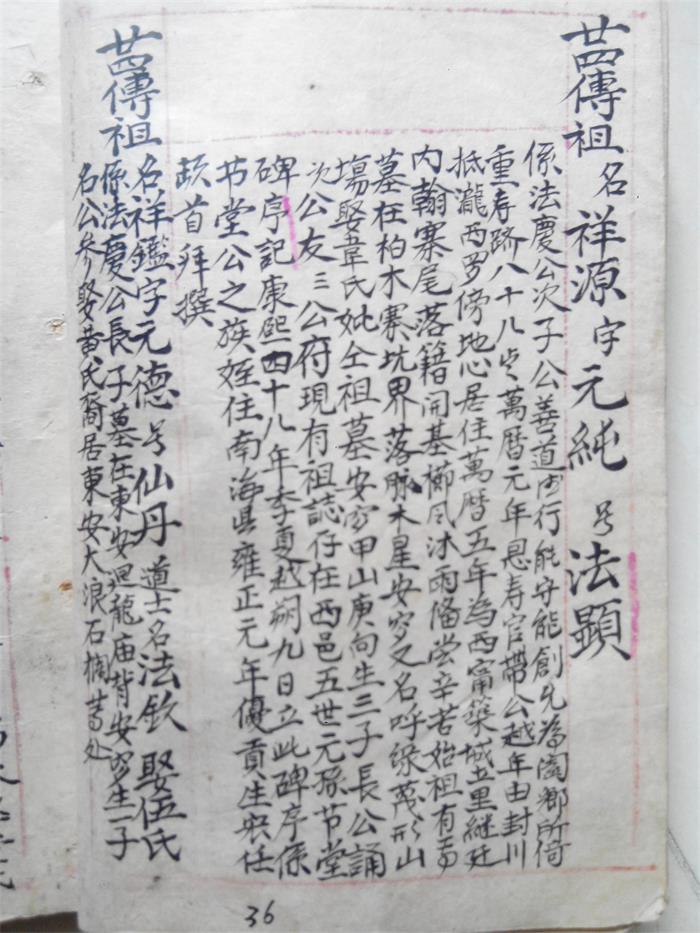 廿四傳祖名祥源字元純号法顯
係法慶公次子公善道德行能守能創先為闔鄉所倚
重寿跻八十八岁萬曆元年恩寿官帶公越年由封川
抵瀧西罗傍地心居住萬曆五年為西甯築城五里継廷
内翰寨尾落籍開基櫛风沐雨俻尝辛苦始祖有
墓在柏木寨坑界落脉木星安穸又名呼绿茂形山
塲娶韋氏妣仝祖墓安穸甲山庚向生三子長公誦
次公友三公府現有祖誌仔在西邑五世元孫节堂
碑序記康熙四十八年季夏越朔九日立此碑序係
书堂公之族姪住南海县雍正元年優貢生任
頿首拜撰
廿四傳祖名祥鑑字元德号仙丹道士名法欽娶伍氏
係法慶公長子墓在東安廻龍庙背安穸生一子
名公参娶黃氏裔居東安大浪石橺等处
36